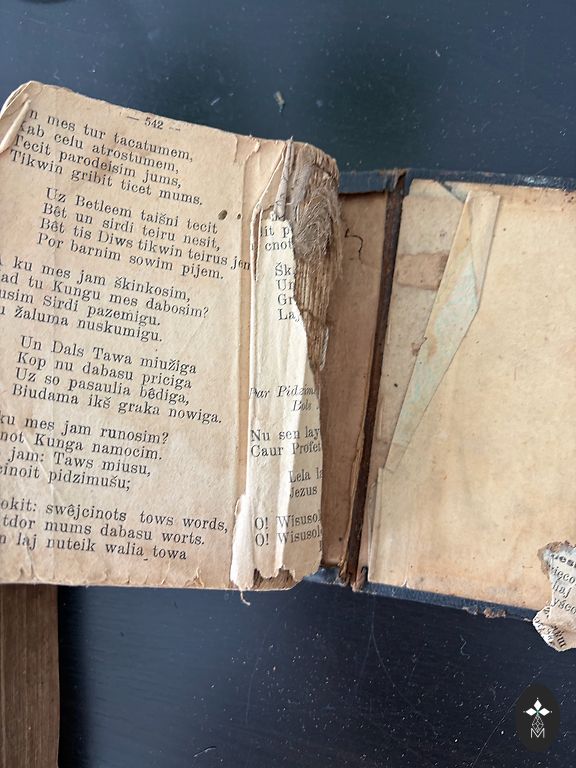 — 542 —
n mes tur tacatumem,
kab celu atrostumem,
Tecit parodeisim jums,
Tikwin gribit ticet mums.
Uz Betleem taišni tecit
Bêt un sirdi teiru nesit,
Bêt tis Diws tikwin teirus jem
Por barnim sowim pijem.
ku mes jam škinkosim,
ad tu Kungu mes dabosim?
usim Sirdi pazemigu.
žaluma nuskumigu.
Un Dals Tawa miužiga
Kop nu dabasu priciga
Uz so pasaulia bêdiga,
Biudama ikš graka nowiga.
ku mes jam runosim?
not Kunga namocim.
jam: Taws miusu,
cinoit pidzimušu;
okit: swêjcinots tows words,
tdor mums dabasu worts.
n laj nuteik walia towa
cnot
Šk
Un
Gr
Laj
Par Pidzim
Bole
Nu sen lay
Caur Profet
Lela la
Jezus
O! Wisuso
O! Wisusol
M